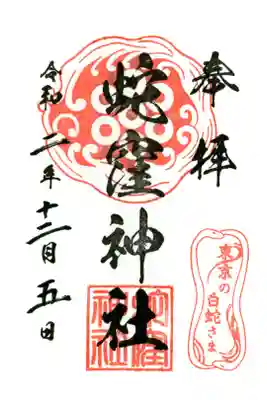 奉拝
蛇窪神社
令和二年十二月五日
東京の
白蛇さま
蛇窪
神社